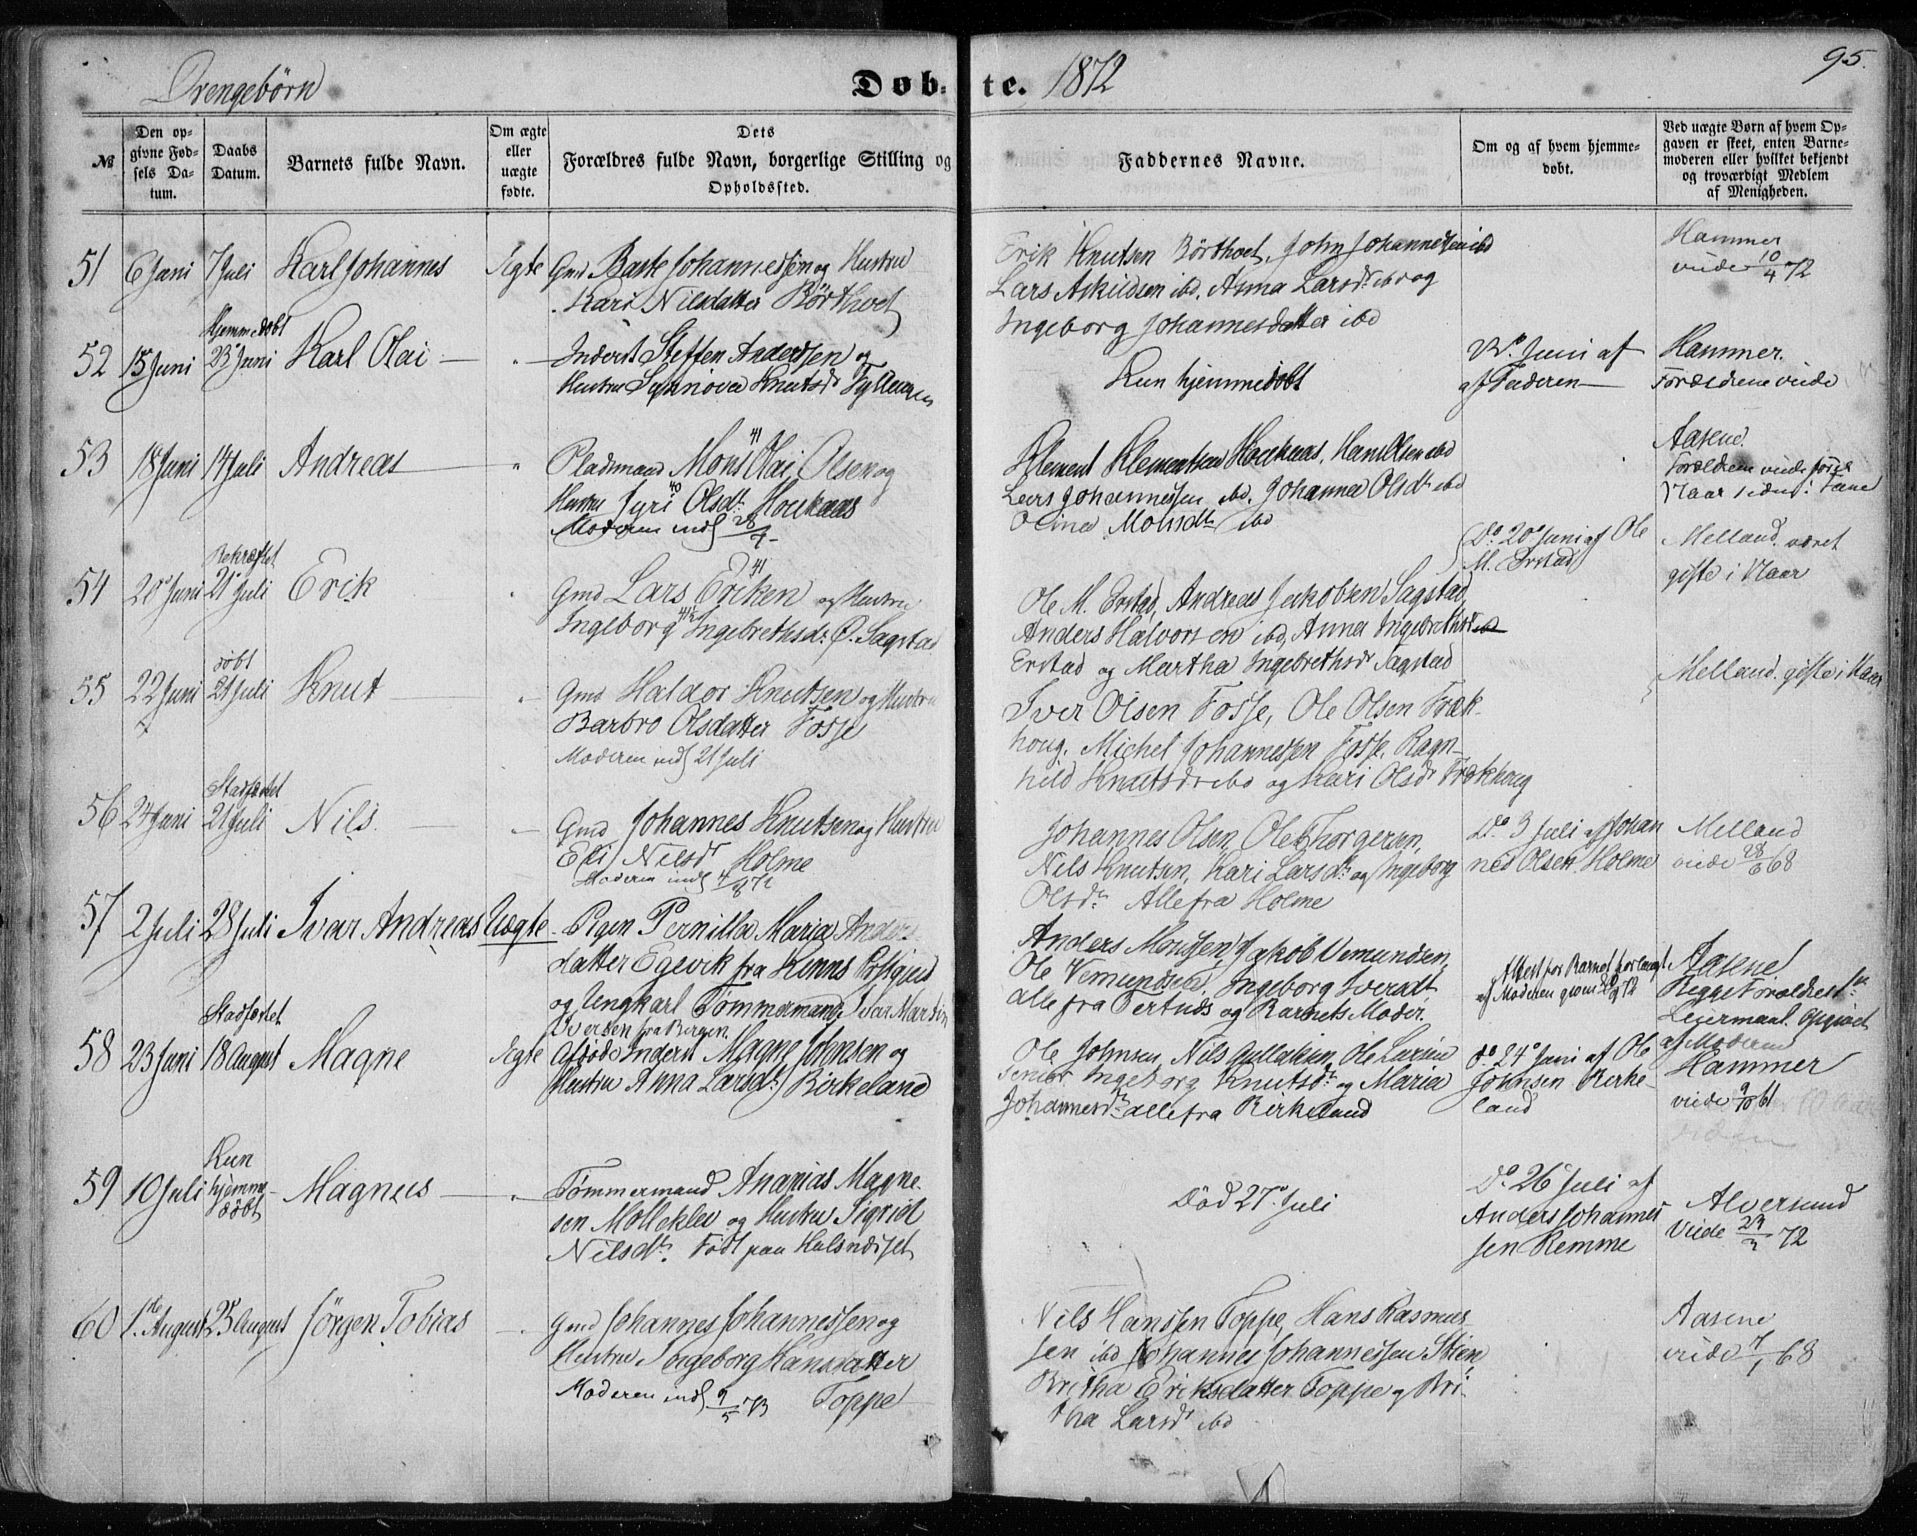 Drengebørn
Døb-te. 1872
95.
№
Den opgivne Fødsels Datum.
Daabs Datum.
Barnets fulde Navn.
Om ægte eller uægte fødte.
Dets Forældres fulde Navn, borgerlige Stilling og Opholdssted.
Faddernes Navne.
Om og af hvem hjemmedøbt.
Ved uægte Børn af hvem Opgaven er skeet, enten Barnemoderen eller hvilket bekjendt og troværdigt Medlem af Menigheden.
51 6 Juni 7 Juli Karl Johannes Ægte Gmd Johannessen og Hustru
Kari Nilsdatter Børthvet
Erik Knutsen Børthvet, John Johannessen ibd
Lars Askildsen ibd, Anna Larsdr ibd og
Ingeborg Johannesdatter ibd
Hammer
viede 10/4 72
52 15 Juni Hjemmedøbt 23 Juni Karl Olai
Inderst Steffen Andersen og
Hustru Synnova Knutsdr
Kun hjemmedøbt
Do Juni af
af Faderen
Hammer.
Forældrene viede
53 18 Juni 14 Juli Andreas
Pladsmand Mons Olai 41 Olsen og
Hustru Syri 40 Olsdr. Houkaas
Moderen indl 28/7
Klement Klementsen Houkaas, Hans Olsen ibd
Lars Johannessen ibd. Johanna Olsdr ibd
Olina Monsdr ibd
Aasene.
Forældrene viede
54 20 Juni Bekræftet 21 Juli Erik
Gmd Lars Eriksen 41 og Hustru
Ingeborg 41 1/2 Ingebrethsdr. Ø. Sagstad
Ole M. Erstad, Andreas Jakobsen Sagstad,
Anders Halvorsen ibd, Anna Ingebrethsdr
Erstad og Martha Ingebrethsdr Sagstad
Do 20 Juni af Ole
M. Erstad
Melland. været
gifte i Aaar
55 22 Juni døbt 21 Juli Knut
Gmd Haldor Knutsen og Hustru
Barbro Olsdatter Fosse
Moderen indl 21 Juli
Iver Olsen Fosse, Ole Olsen Fræk-
houg. Michel Johannessen Fosse, Ragn-
hild Knutsdr ibd og Kari Olsdr Frækhoug
Melland. gifte i
56 24 Juni Stadfæstet 21 Juli Nils.
Gmd Johannes Knutsen og Hustru
Eli Nilsdr Holme
Moderen indl 4/8 72
Johannes Olsen, Ole Thorgersen,
Nils Knutsen, Kari Larsdr. og Ingeborg
Olsdr. Alle fra Holme
Do 3 Juli af Johan
nes Olsen Holme
Melland
viede 28/6 68
57 2 Juli 28 Juli Ivar Andreas Uægte
Pigen Pernilla Maria Anders-
datter Egevik fra Kinns Præstgjeld
og Ungkarl Tømmermand Ivar Martin
Iversen fra Bergen.
Anders Monsen, Jakob Vemundsen,
Ole Vemundsen, Ingeborg Iversdt
alle fra og Barnets Moder.
Attest for Barnet forlangt
af Moderen
Aasene.
Begge Forældres 1ste
Leiermaal. Opgivet
af Moderen
58 23 Juni Stadfæstet 18 August Magne Ægte
Afdøde Inderst Magne Johnsen og
Hustru Anna Larsdr. Birkeland
Ole Johnsen, Nils Gullaksen, Ole Larsen
senior Ingeborg Knutsdr. og Maria
Johannesdr. alle fra Birkeland
do 24 Juni af Ole
Johnsen Birke-
land
Hammer
viede 9/10 61
59 10 Juli Kun hjemme-døbt Magnus
Tømmermand Ananias Magne-
sen Mollekleiv og Hustru Sigrid
Nilsdr. Født paa Halsnæset
Død 27 Juli
Do 26 Juli af
Anders Johannes-
sen Remme
Alversund
Viede 23/3 72
60 1ste August 25 August Jörgen Tobias
Gmd Johannes Johannessen og
Hustru Ingeborg Hansdatter
Moderen indl 9/5 73 Toppe
Nils Hanssen Toppe, Hans Rasmus-
sen ibd Johannes Johannessen Stien
Britha Eriksdatter Toppe og Bri-
tha Larsdr ibd
Aasene
viede 7/1 68